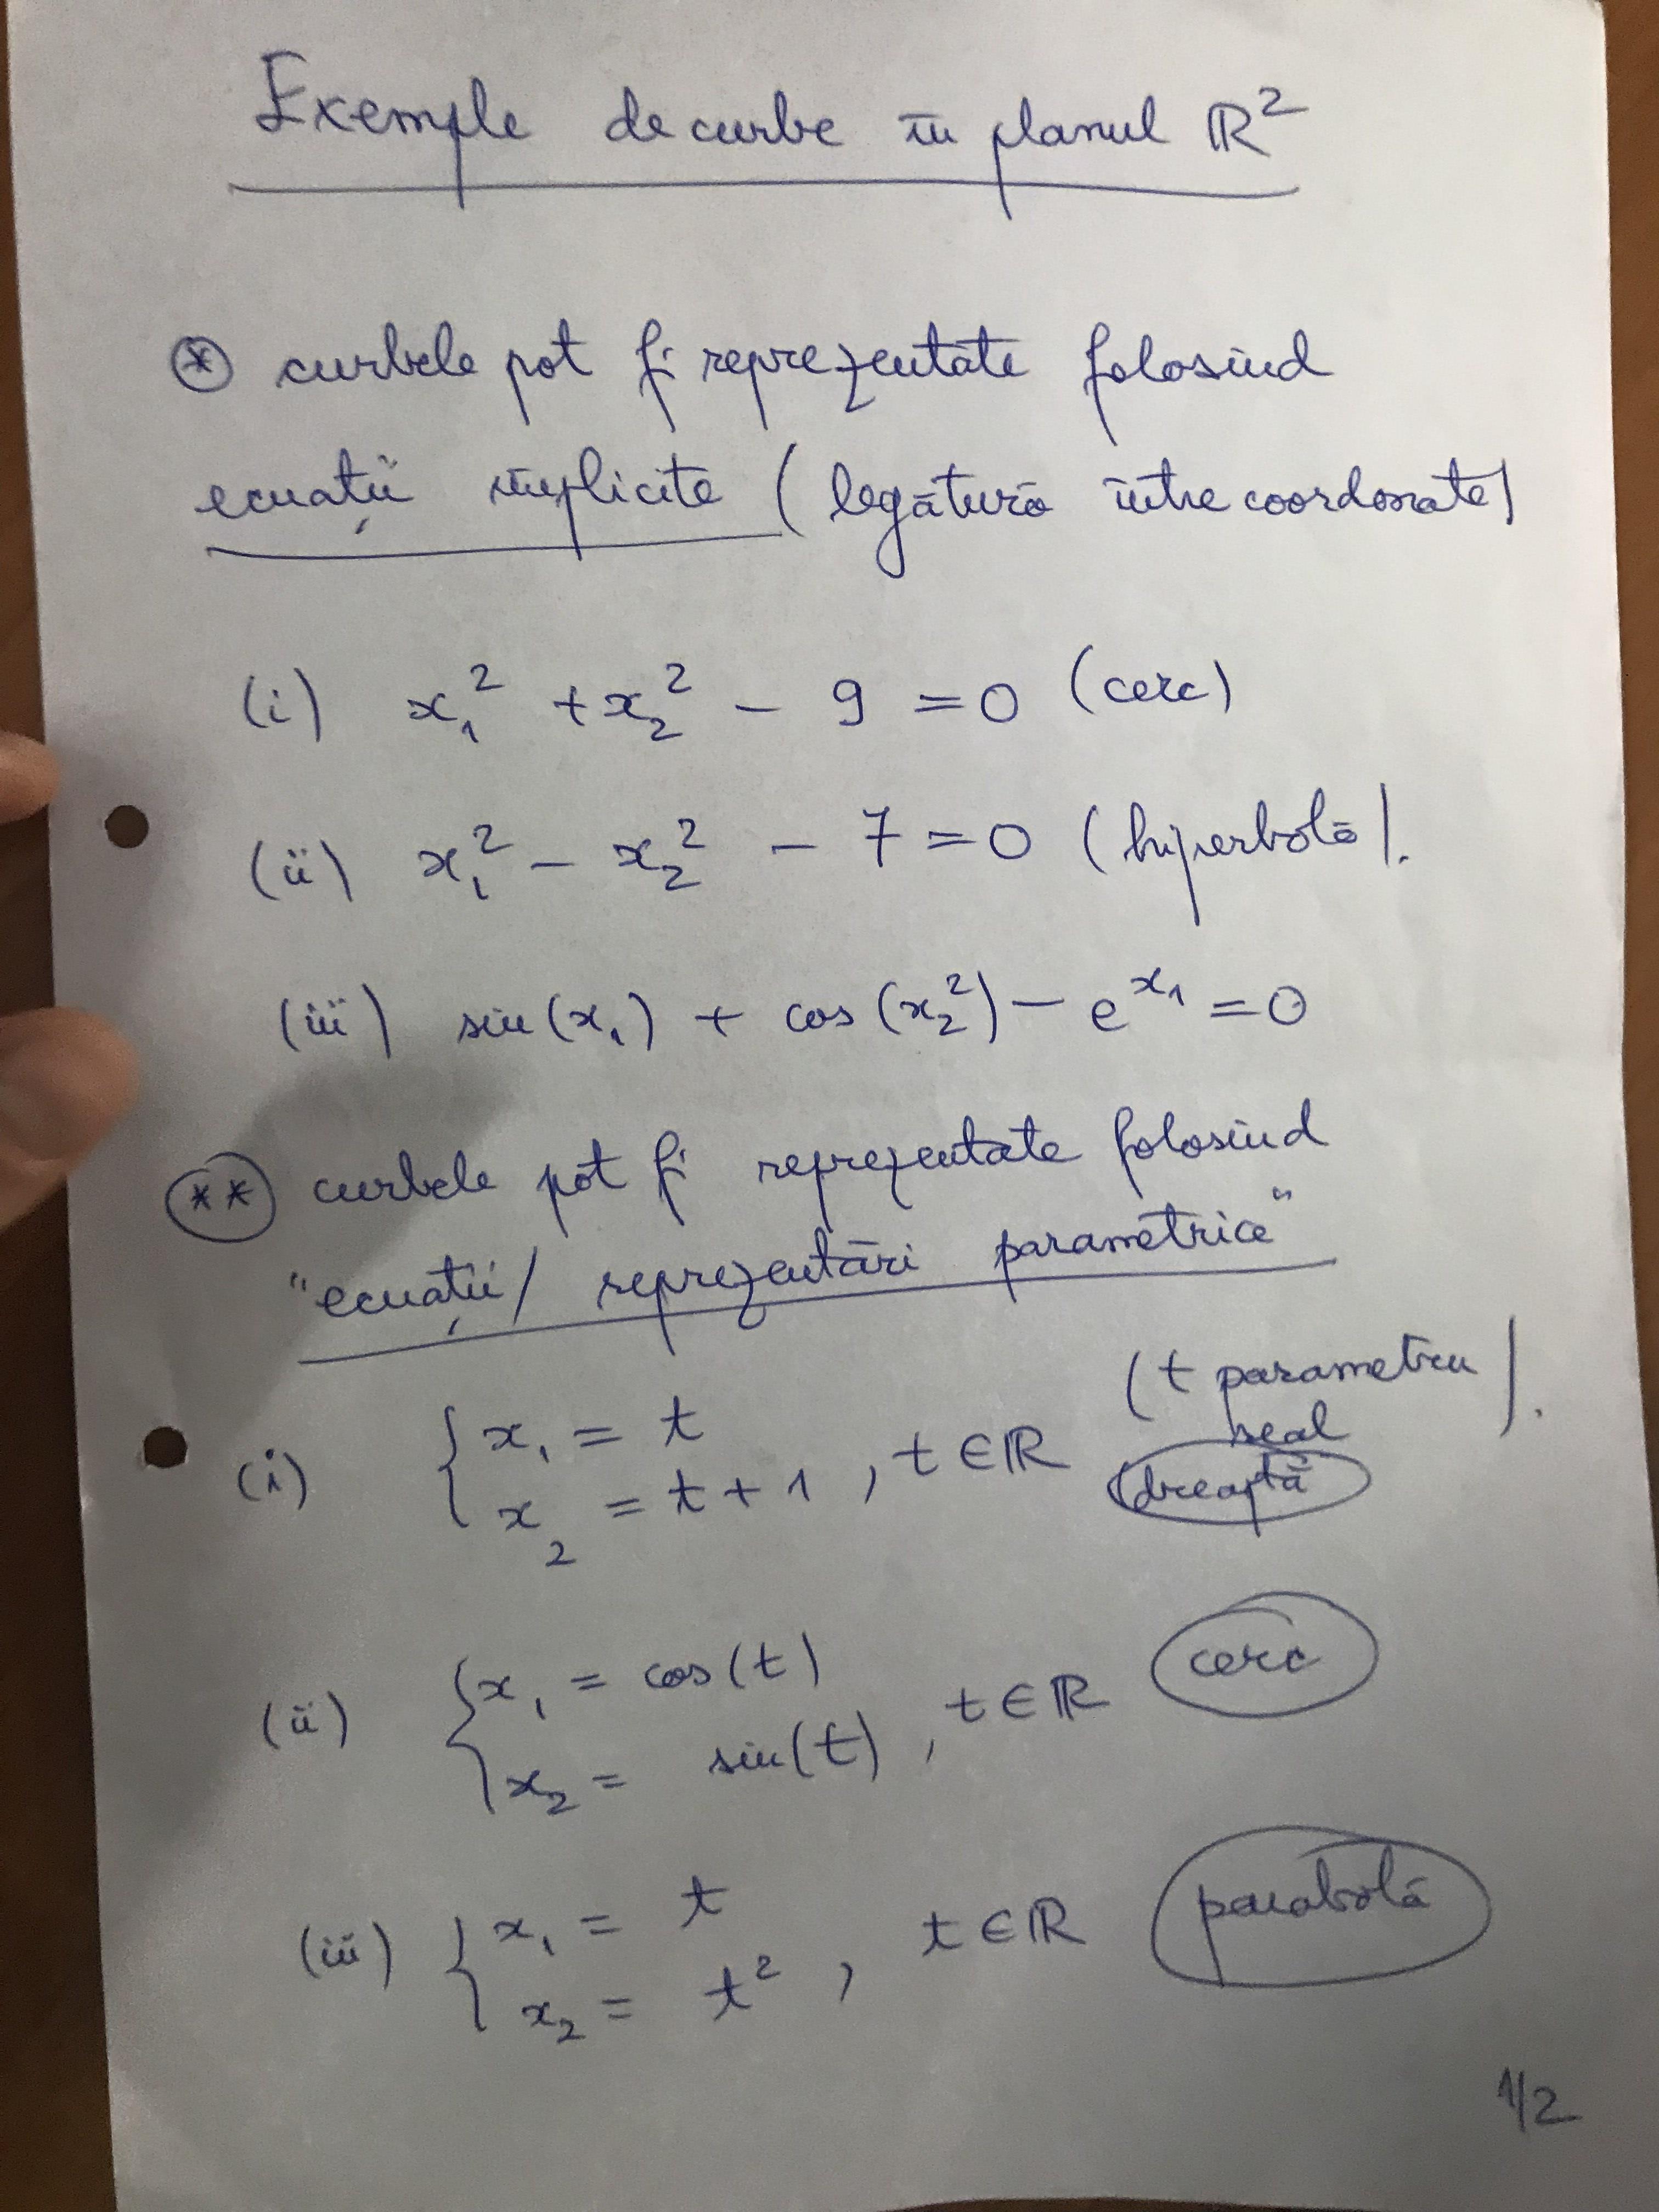 Exemple de curbe în planul ℝ²
(*) curbele pot fi reprezentate folosind
ecuații implicite (legătura între coordonate)
(i) x₁² + x₂² - 9 = 0 (cerc)
(ii) x₁² - x₂² - 7 = 0 (hiperbolă).
(iii) sin(x₁) + cos(x₂²) - e^x₁ = 0
(**) curbele pot fi reprezentate folosind
"ecuații/reprezentări parametrice"
(t parametru real).
(i) { x₁ = t
x₂ = t + 1, t ∈ ℝ dreaptă
(ii) { x₁ = cos(t)
x₂ = sin(t), t ∈ ℝ cerc
(iii) { x₁ = t
x₂ = t², t ∈ ℝ parabolă
1/2